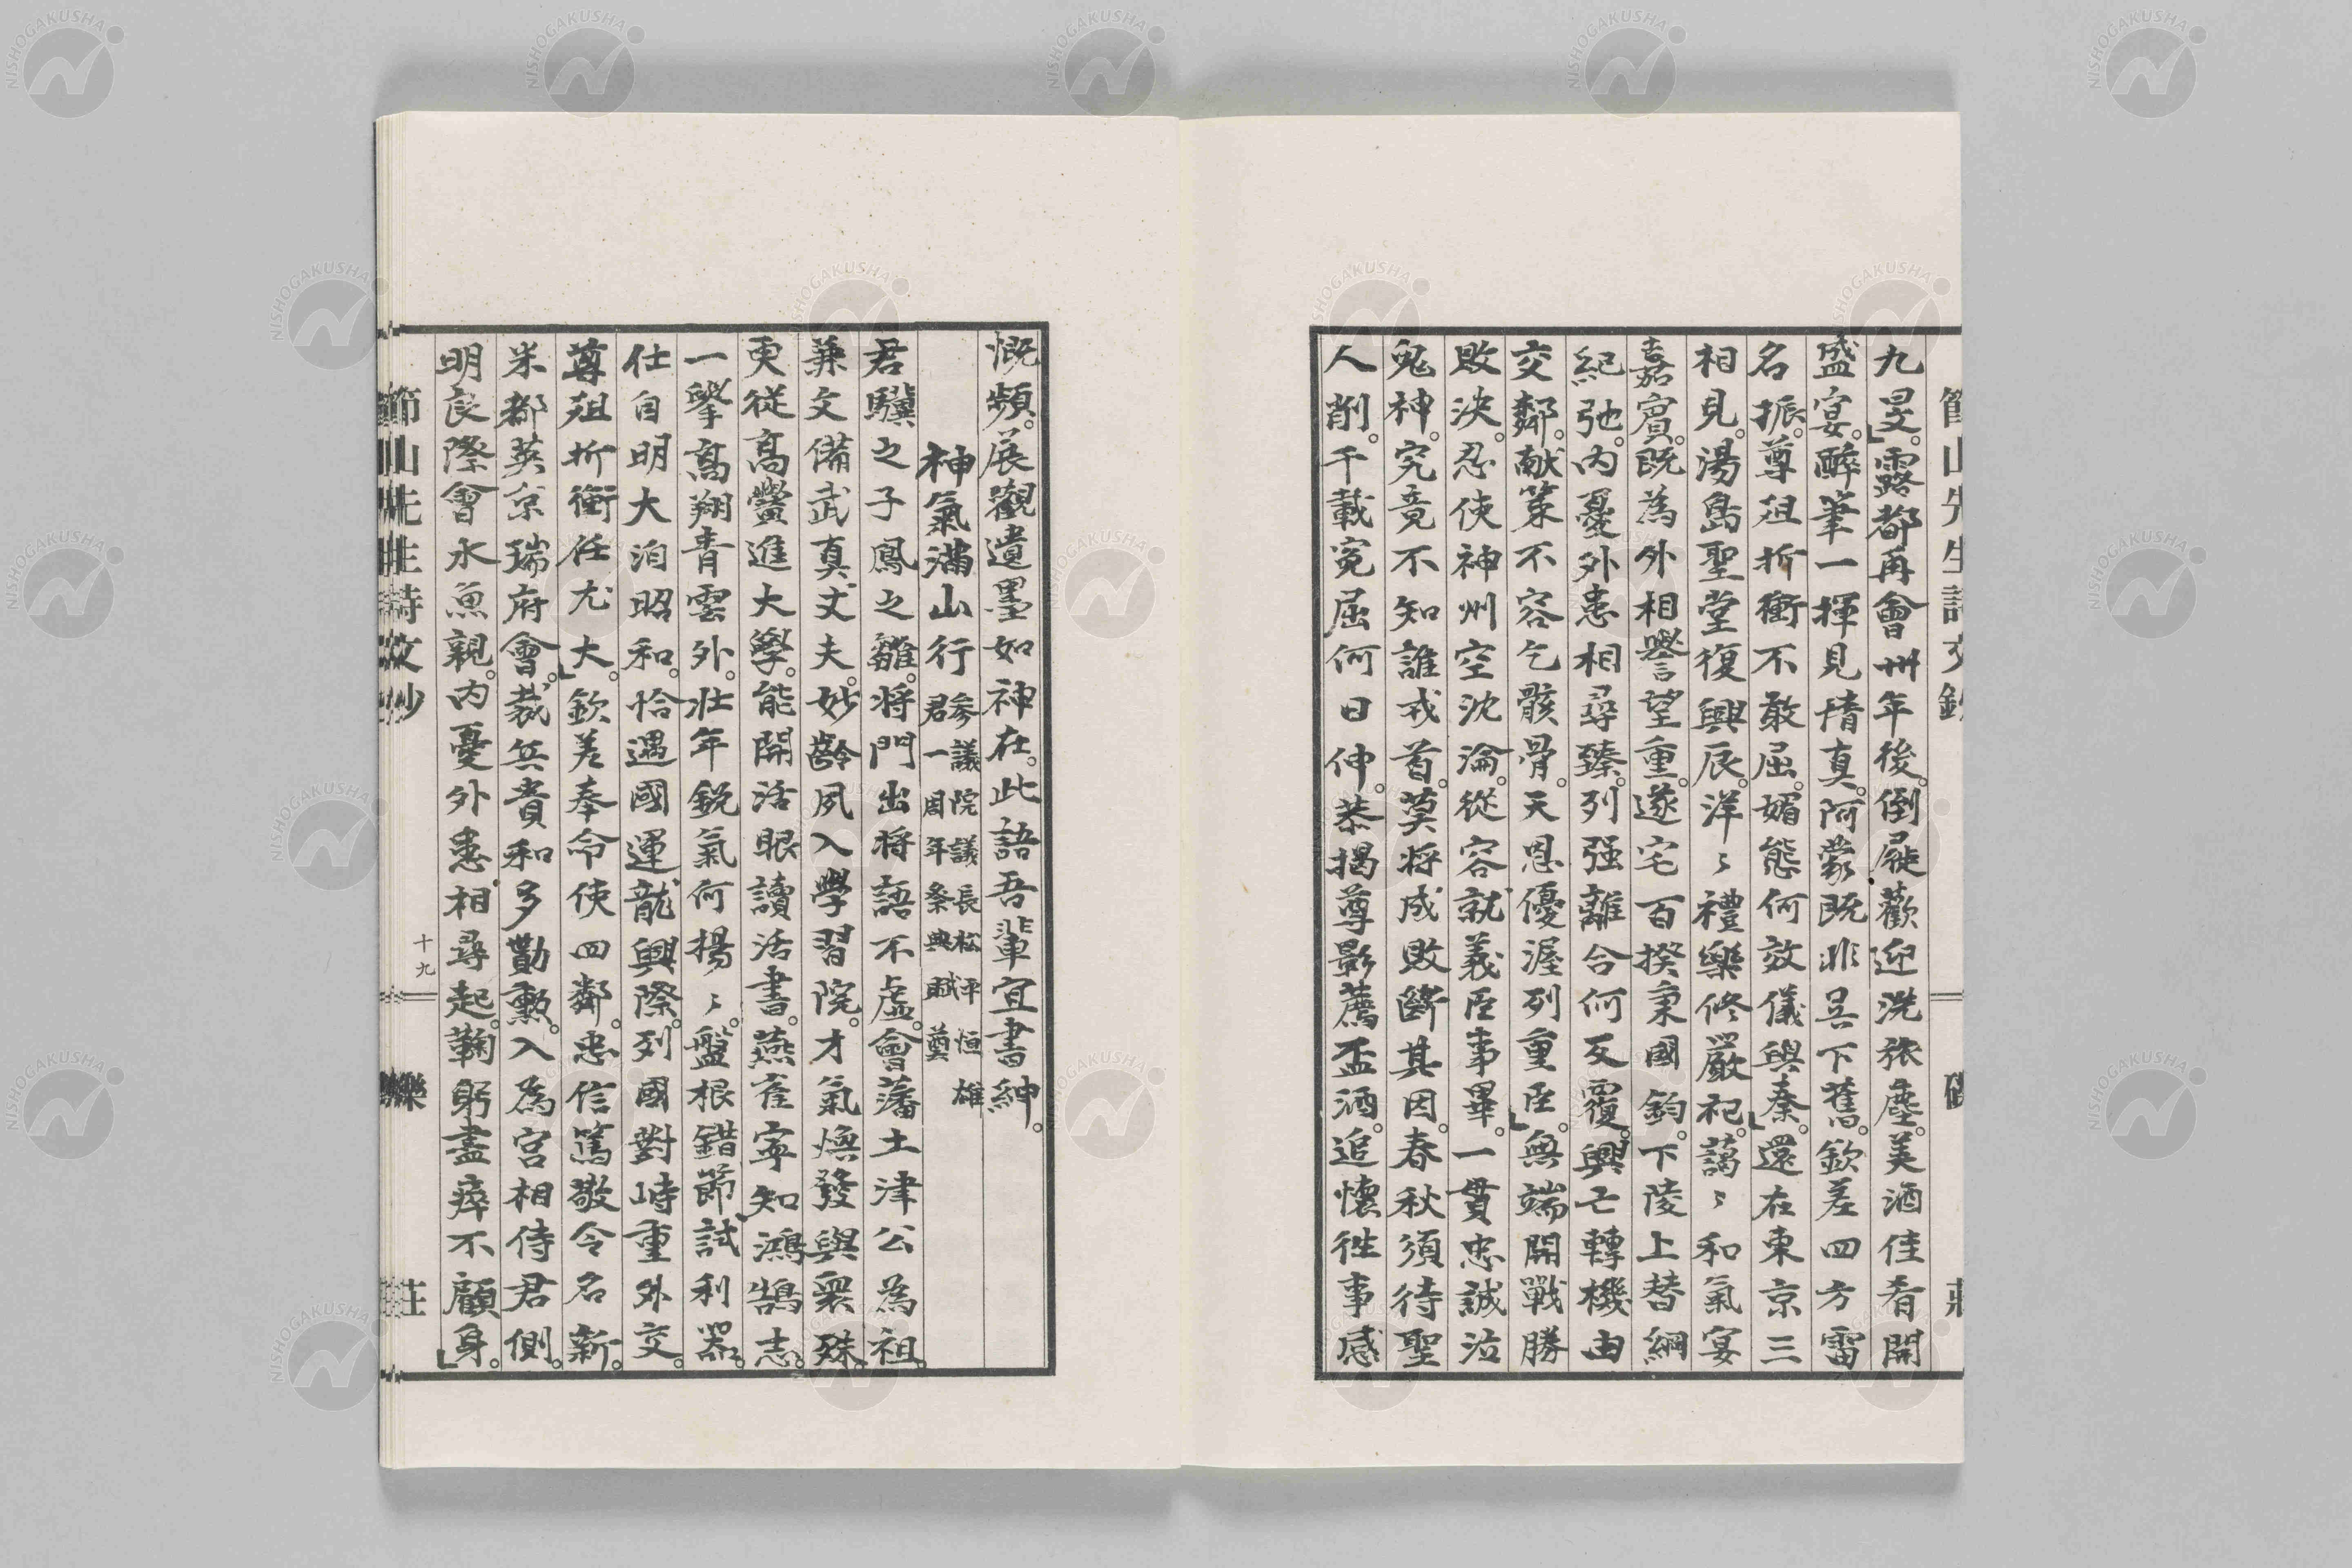 九旻。露都再會卌年後。倒屣歡迎洗旅塵。美酒佳肴開
盛宴。醉筆一揮見情真。阿蒙既非吳下舊。欽差四方雷
名振。尊俎折衝不敢屈。媚態何效儀與秦。還在東京三
相見。湯島聖堂復興辰。洋〻禮樂修嚴祀。藹〻和氣宴
嘉賓。既為外相譽望重。遂宅百揆秉國鈞。下陵上替綱
紀弛。內憂外患相尋臻。列强離合何反覆。興亡轉機由
交鄰。献策不容乞骸骨。天恩優渥列重臣。無端開戰勝
敗決。忍使神州空沈淪。從容就義臣事畢。一貫忠誠泣
鬼神。究竟不知誰戎首。莫將成敗斷其因。春秋須待聖
人削。千載冤屈何日伸。恭揭尊影薦盃酒。追懷徃事感
慨頻。展觀遺墨如神在。此語吾輩宜書紳。
神氣滿山行 參議院議長松平恒雄
君一周年祭典賦奠
君驥之子鳳之雛。將門出將語不虛。會藩土津公為祖。
兼文備武真丈夫。妙齡夙入學習院。才氣煥發與衆殊。
更從高黌進大學。能開活眼讀活書。燕雀寧知鴻鵠志。
一擧高翔青雲外。壯年銳氣何揚〻。盤根錯節試利器。
仕自明大洎昭和。恰遇國運龍興際。列國對峙重外交。
尊俎折衝任尤大。欽差奉命使四鄰。忠信篤敬令名新。
米都英京瑞府會。裁兵貴和多勤勳。入為宮相侍君側。
明良際會水魚親。內憂外患相尋起。鞠躬盡瘁不顧身。
節山先生詩文鈔
十九